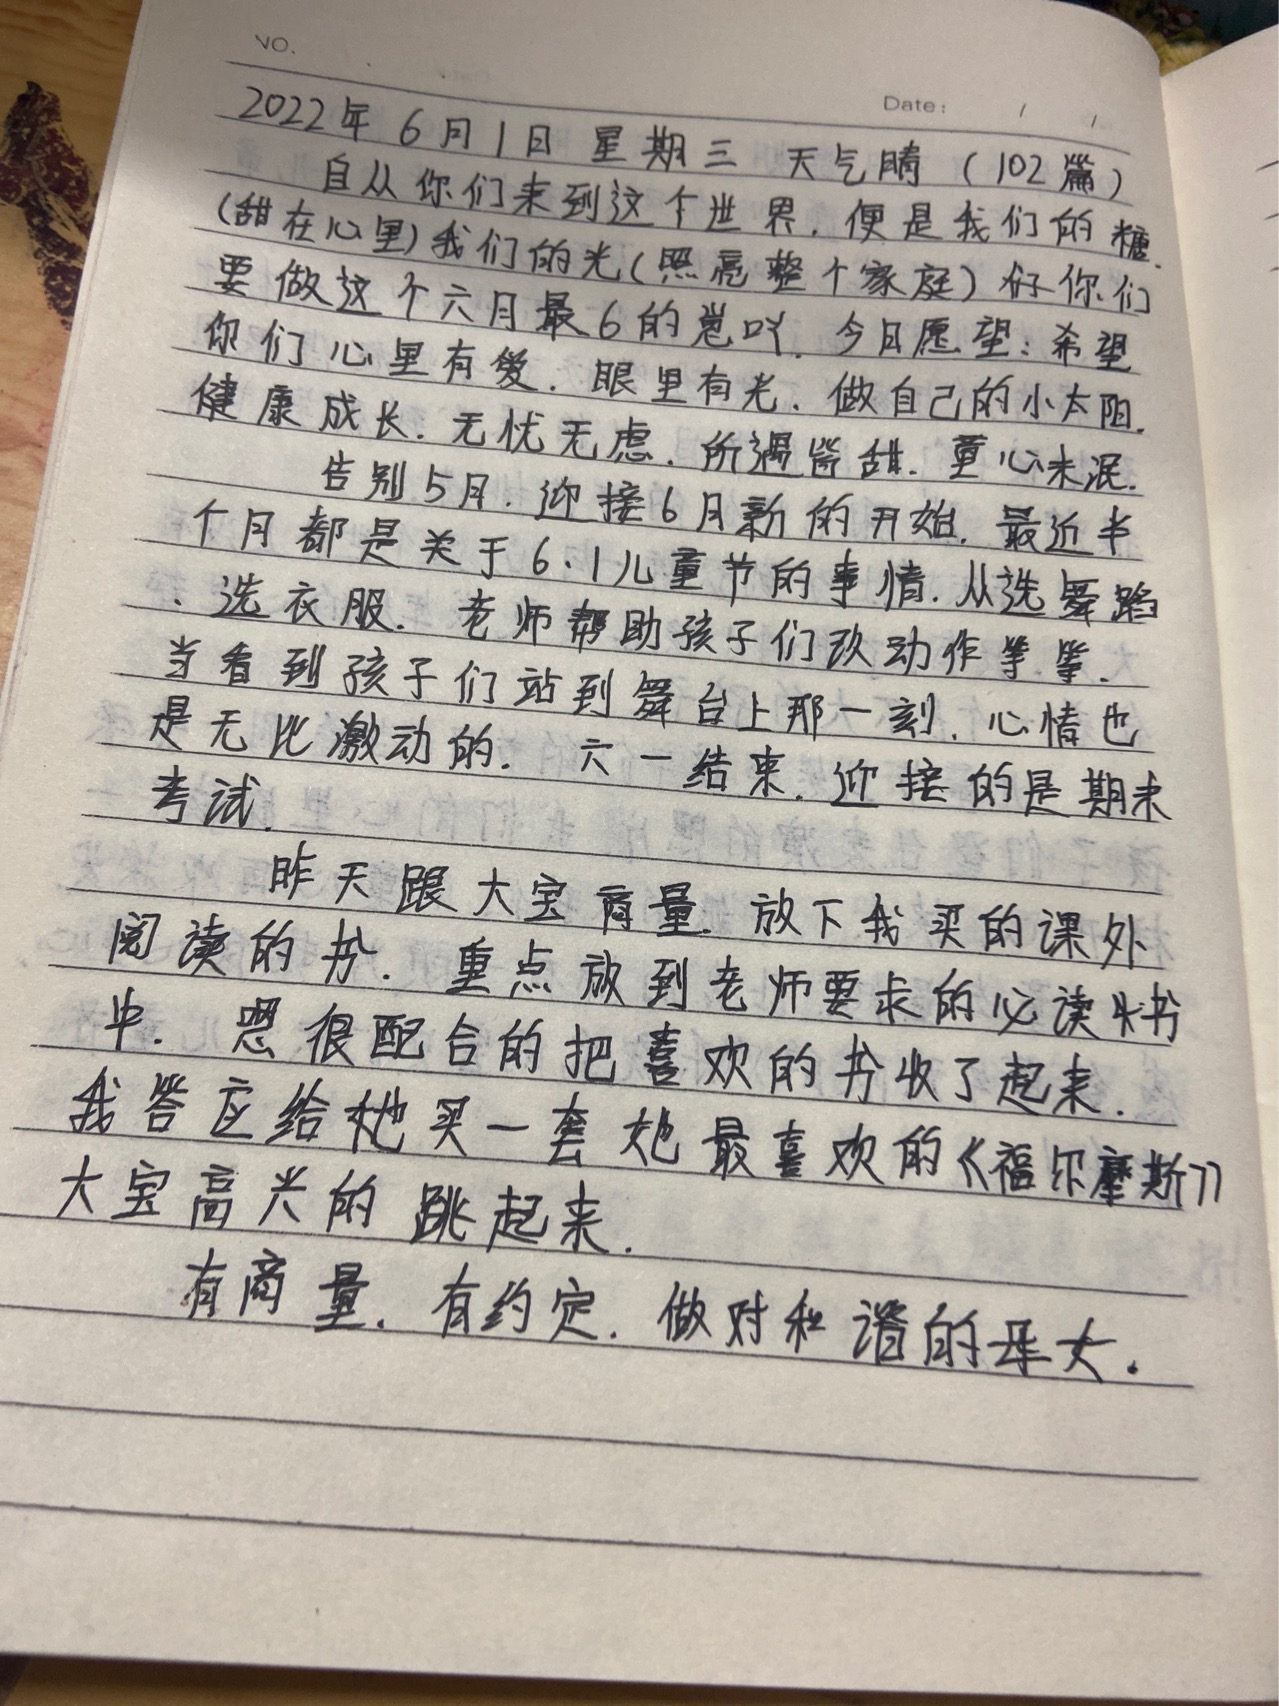 VO.
Date: / /
2022年6月1日 星期三 天气晴 (102篇)
自从你们来到这个世界.便是我们的糖.
(甜在心里)我们的光(照亮整个家庭)好你们
要做这个六月最6的崽吖.今日愿望:希望
你们心里有爱.眼里有光.做自己的小太阳.
健康成长.无忧无虑.所遇皆甜.童心未泯.
告别5月.迎接6月新的开始.最近半
个月都是关于6.1儿童节的事情.从选舞蹈
、选衣服.老师帮助孩子们改动作等等.
当看到孩子们站到舞台上那一刻.心情也
是无比激动的.六一结束.迎接的是期末
考试.
昨天跟大宝商量.放下我买的课外
阅读的书.重点放到老师要求的必读书
中.嗯很配合的把喜欢的书收了起来.
我答应给她买一套她最喜欢的《福尔摩斯》
大宝高兴的跳起来.
有商量.有约定.做对和谐的母女.